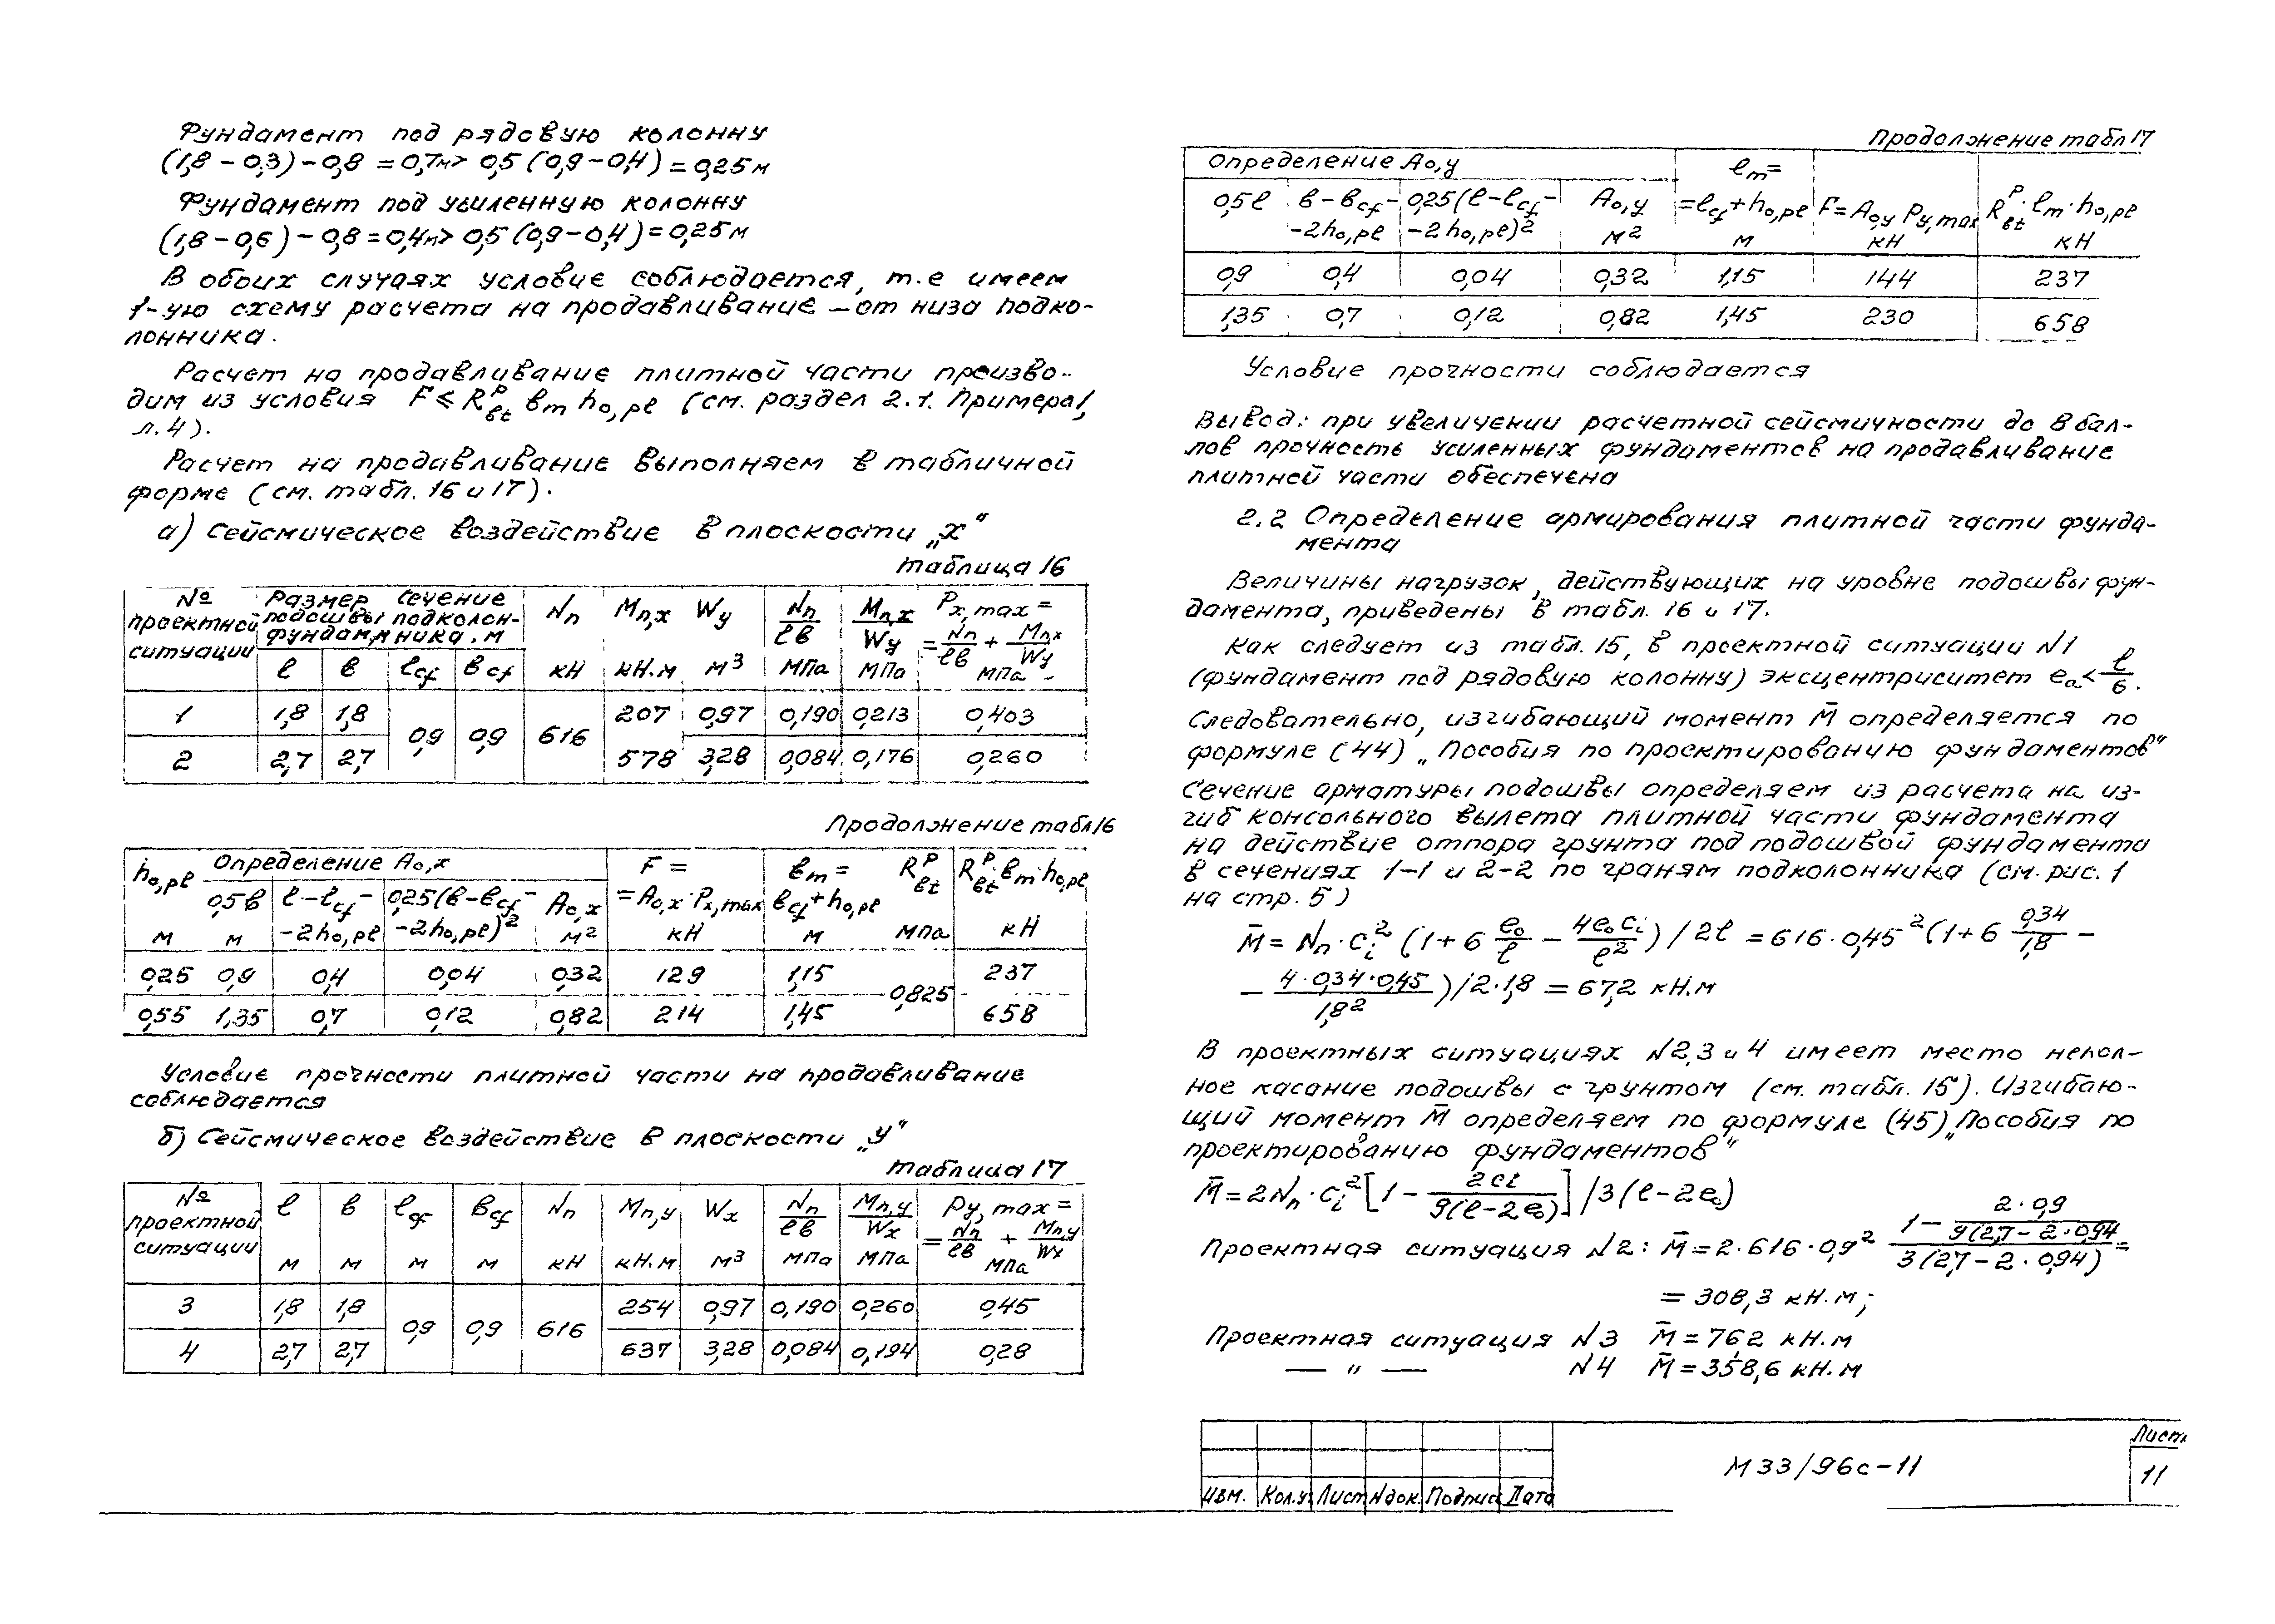 Фундамент под рядовую колонну
(1,8 – 0,3) – 0,8 = 0,7м > 0,5 (0,9 – 0,4) = 0,25 м
Фундамент под усиленную колонну
(1,8 – 0,6) – 0,8 = 0,4м > 0,5 (0,9 – 0,4) = 0,25 м
В обоих случаях условие соблюдается, т.е имеем
1-ую схему расчета на продавливание – от низа подко-
лонника.
Расчет на продавливание плитной части произво-
дим из условия F ≤ R^p_bt b_m h_o,pl (см. раздел 2.1. Примера 1,
л. 4).
Расчет на продавливание выполняем в табличной
форме (см. табл. 16 и 17).
а) Сейсмическое воздействие в плоскости „х“
Таблица 16
№ проектной ситуации | Размер подошвы фундам, м | Сечение подколонника, м | Nп | Mп,x | Wy | Nп/ℓв | Mп,x/Wy | Px,max = = Nп/ℓв + Mп,x/Wy
ℓ | в | ℓcf | вcf | кН | кН.м | м³ | МПа | МПа | МПа
1 | 1,8 | 1,8 | 0,9 | 0,9 | 616 | 207 | 0,97 | 0,190 | 0,213 | 0,403
2 | 2,7 | 2,7 | 578 | 3,28 | 0,084 | 0,176 | 0,260
Продолжение табл 16
h_o,pl | Определение Ao,x | F = = Ao,x · Px,max | вm = вcf + ho,pl | R^p_bt | R^p_bt · вm · ho,pl
0,5в | ℓ – ℓcf – – 2ho,pl | 0,25(в – вcf – – 2ho,pl)² | Ao,x
м | м | м² | кН | м | МПа | кН
0,25 | 0,9 | 0,4 | 0,04 | 0,32 | 129 | 1,15 | 0,825 | 237
0,55 | 1,35 | 0,7 | 0,12 | 0,82 | 214 | 1,45 | 658
Условие прочности плитной части на продавливание
соблюдается
б) Сейсмическое воздействие в плоскости „у“
Таблица 17
№ проектной ситуации | ℓ | в | ℓcf | вcf | Nп | Mп,y | Wx | Nп/ℓв | Mп,y/Wx | Py,max = = Nп/ℓв + Mп,y/Wx
м | м | м | м | кН | кН.м | м³ | МПа | МПа | МПа
3 | 1,8 | 1,8 | 0,9 | 0,9 | 616 | 254 | 0,97 | 0,190 | 0,260 | 0,45
4 | 2,7 | 2,7 | 637 | 3,28 | 0,084 | 0,194 | 0,28
Продолжение табл 17
Определение Ao,y | ℓm = = ℓcf + ho,pl | F = Ao,y Py,max | R^p_bt · ℓm · ho,pl
0,5ℓ | в – вcf – – 2ho,pl | 0,25(ℓ – ℓcf – – 2ho,pl)² | Ao,y
м² | м | кН | кН
0,9 | 0,4 | 0,04 | 0,32 | 1,15 | 144 | 237
1,35 | 0,7 | 0,12 | 0,82 | 1,45 | 230 | 658
Условие прочности соблюдается
Вывод: при увеличении расчетной сейсмичности до 8 бал-
лов прочность усиленных фундаментов на продавливание
плитной части обеспечена
2.2 Определение армирования плитной части фунда-
мента
Величины нагрузок, действующих на уровне подошвы фун-
дамента, приведены в табл. 16 и 17.
Как следует из табл. 15, в проектной ситуации N1
(фундамент под рядовую колонну) эксцентриситет eₐ < ℓ/6.
Следовательно, изгибающий момент M̄ определяется по
формуле (44) „Пособия по проектированию фундаментов“
Сечение арматуры подошвы определяем из расчета на из-
гиб консольного вылета плитной части фундамента
на действие отпора грунта под подошвой фундамента
в сечениях 1–1 и 2–2 по граням подколонника (см. рис. 1
на стр. 5)
M̄ = Nп · ci² (1 + 6 eo/ℓ – 4eo ci/ℓ²) / 2ℓ = 616 · 0,45² (1 + 6 0,34/1,8 –
– 4 · 0,34 · 0,45/1,8²) / 2 · 1,8 = 67,2 кН.м
В проектных ситуациях N2,3 и 4 имеет место непол-
ное касание подошвы с грунтом (см. табл. 15). Изгибаю-
щий момент M̄ определяем по формуле (45) „Пособия по
проектированию фундаментов“
M̄ = 2Nп · ci² [1 – 2ci/9(ℓ – 2eo)] / 3(ℓ – 2eo)
Проектная ситуация N2: M̄ = 2 · 616 · 0,9² (1 – 2 · 0,9/9(2,7 – 2 · 0,94)) / 3(2,7 – 2 · 0,94) =
= 308,3 кН.м;
Проектная ситуация N3 M̄ = 76,2 кН.м
— „ — N4 M̄ = 358,6 кН.м
М33/96с-11
Лист
11
Изм. | Кол.уч | Лист | Nдок. | Подпись | Дата